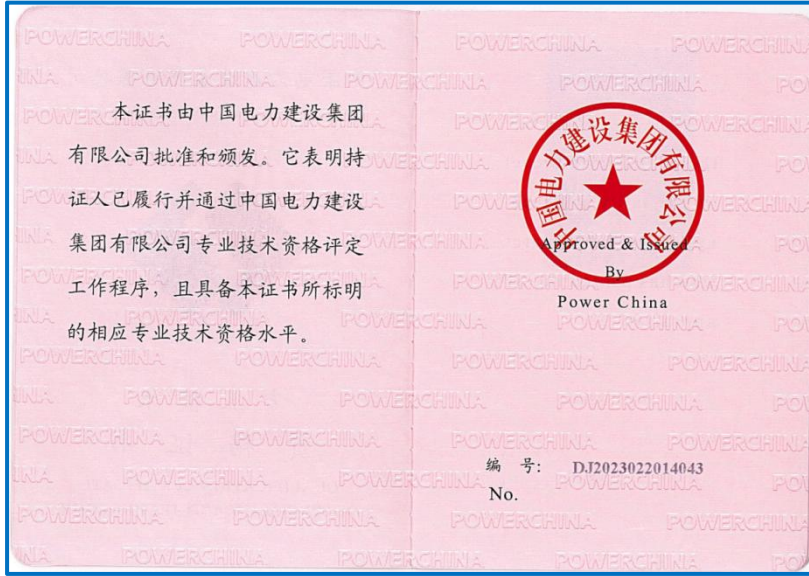 本证书由中国电力建设集团
有限公司批准和颁发。它表明持
证人已履行并通过中国电力建设
集团有限公司专业技术资格评定
工作程序，且具备本证书所标明
的相应专业技术资格水平。
中国电力建设集团有限公司
Approved & Issued
By
Power China
编 号: DJ2023022014043
No.
POWERCHINA